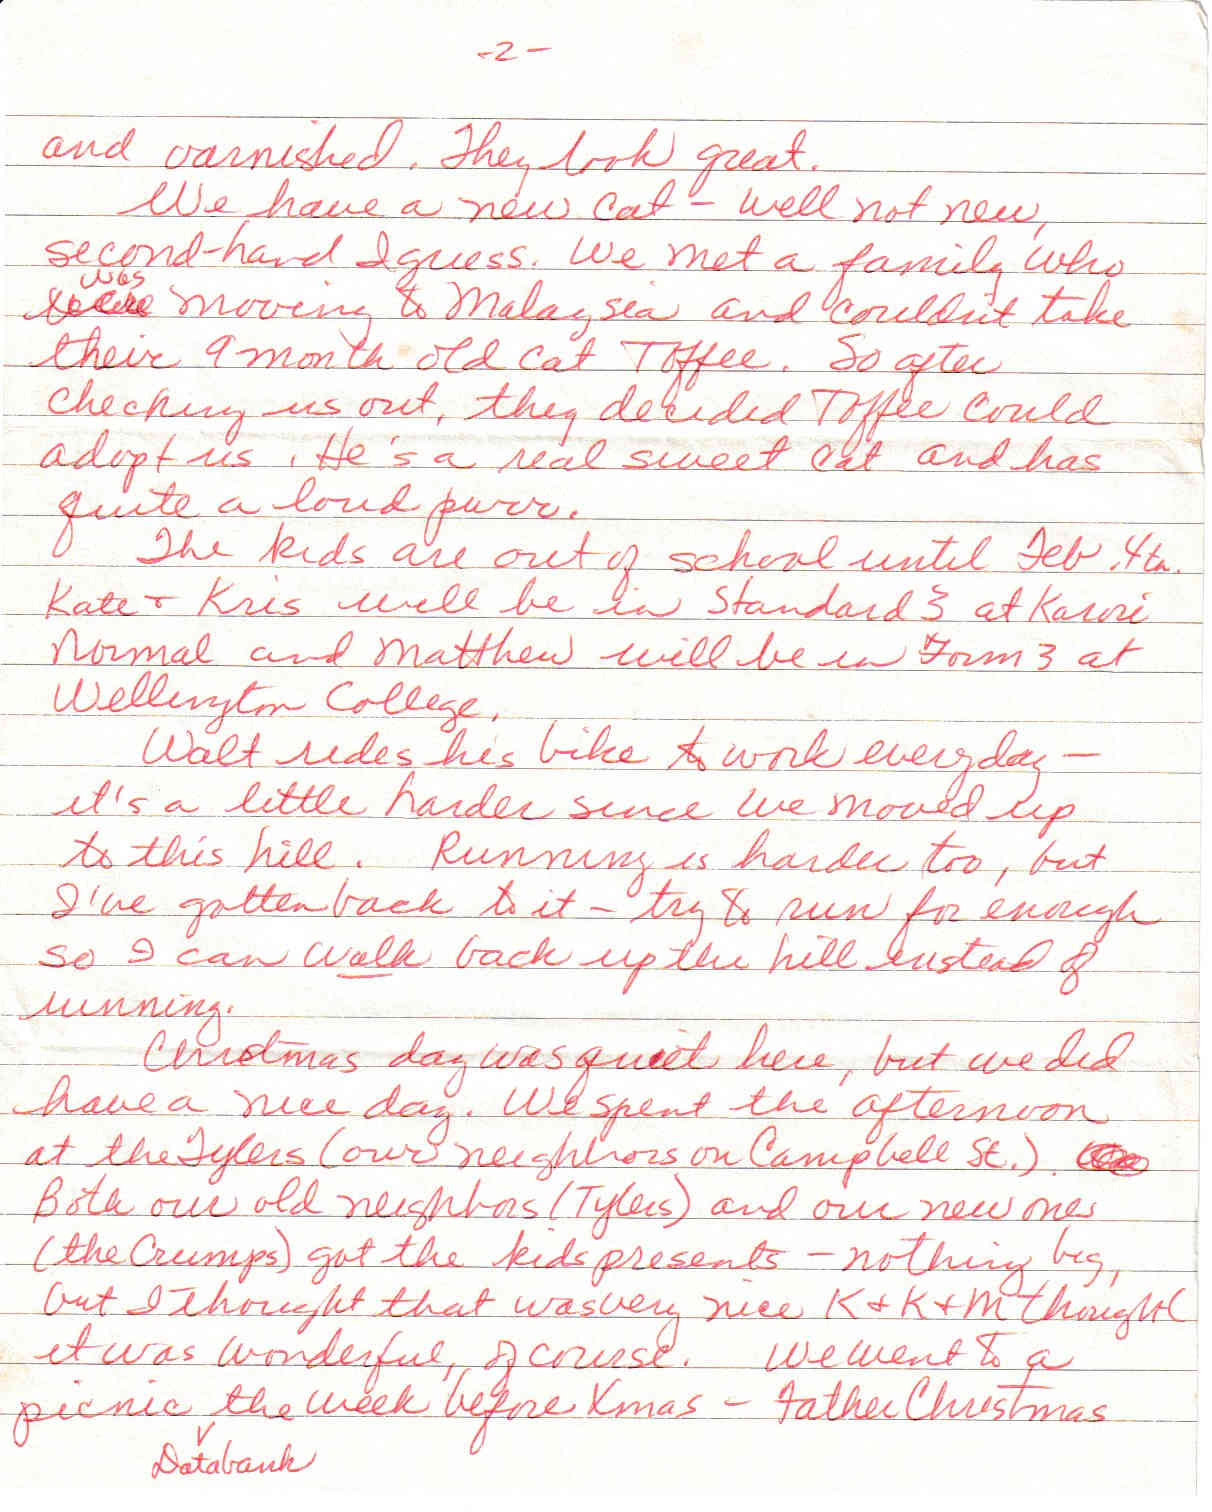 -2-
and varnished. They look great.
We have a new cat - well not new,
second-hand I guess. We met a family who
was
moving to Malaysia and couldn't take
their 9 month old cat Toffee. So after
checking us out, they decided Toffee could
adopt us. He's a real sweet cat and has
quite a loud purr.
The kids are out of school until Feb. 4th.
Kate + Kris will be in Standard 3 at Karori
Normal and Matthew will be in Form 3 at
Wellington College.
Walt rides his bike to work everyday -
it's a little harder since we moved up
to this hill. Running is harder too, but
I've gotten back to it - try to run far enough
so I can walk back up the hill instead of
running.
Christmas day was quiet here, but we did
have a nice day. We spent the afternoon
at the Tylers (our neighbors on Campbell St.).
Both our old neighbors (Tylers) and our new ones
(the Crumps) got the kids presents - nothing big,
but I thought that was very nice K + K + M thought
it was wonderful, of course. We went to a
picnic the week before Xmas - Father Christmas
Databank